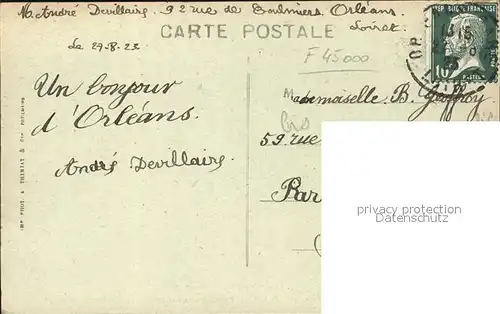 M. André Devillaire, 92 rue de Coulmiers, Orléans.
Loiret.
CARTE POSTALE
Le 29-8-23
F 45000
Un bonjour
d'Orléans.
André Devillaire.
Mademoiselle B. Geoffroy
bis
59 rue
Par
privacy protection overlay
IMP. PHOT. A. THIRIAT & Cie
REPUBLIQUE FRANÇAISE
10